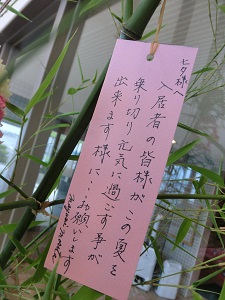 ヒタ様へ
入居者の皆様がこの夏を
乗り切り元気に過ごす事が
出来ます様に・・・お願いします